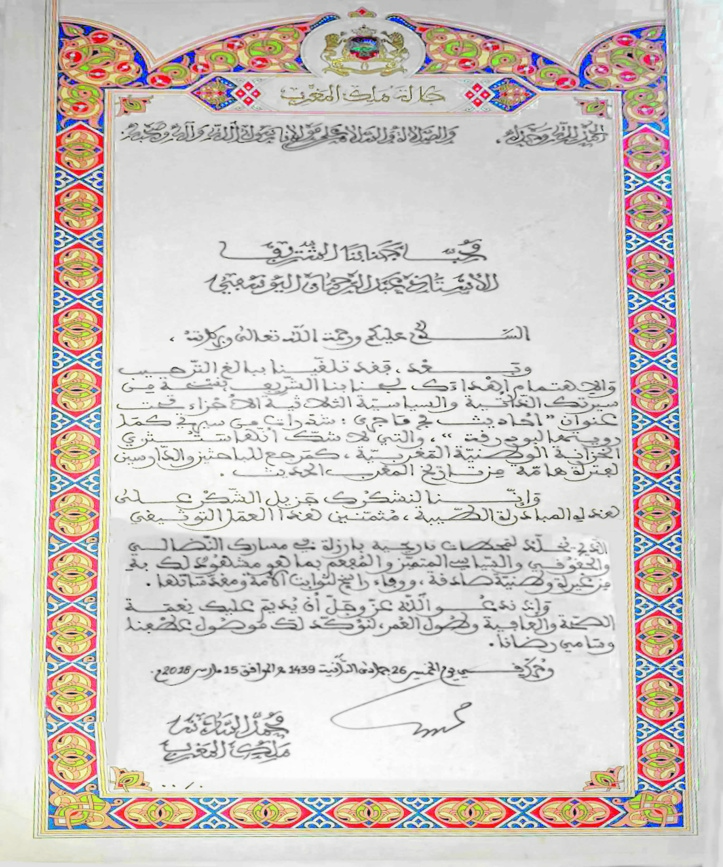 جلالة ملك المغرب
الحمد لله وحده، والصلاة والسلام على مولانا رسول الله وآله وصحبه
محب جنابنا الشريف
الأستاذ عبد الرحمان اليوسفي
السلام عليكم ورحمة الله تعالى وبركاته،
وبعد، فقد تلقينا ببالغ الترحيب
والاهتمام إهداءك لجنابنا الشريف نسخة من
سيرتك الذاتية والسياسية الثلاثية الأجزاء تحت
عنوان "أحاديث في ما جرى: شذرات من سيرتي كما
رويتها لبودرقة"، والتي لا شك أنها ستثري
الخزانة الوطنية المغربية، كمرجع للباحثين والدارسين
لفترة هامة من تاريخ المغرب الحديث.
وإننا لنشكرك جزيل الشكر على
هذه المبادرة الطيبة، مثمنين هذا العمل التوثيقي
الذي يخلد لمحطات تاريخية بارزة في مسارك النضالي
والحقوقي والسياسي المتميز والمفعم بما هو مشهود لك به
من غيرة وطنية صادقة، ووفاء راسخ لثوابت الأمة ومقدساتها.
وإذ ندعو الله عز وجل أن يديم عليك نعمة
الصحة والعافية وطول العمر، لنؤكد لك موصول عطفنا
وسامي رضانا.
وحرر في الخميس 26 جمادى الثانية 1439 ه الموافق 15 مارس 2018 م.
محمد السادس
ملك المغرب